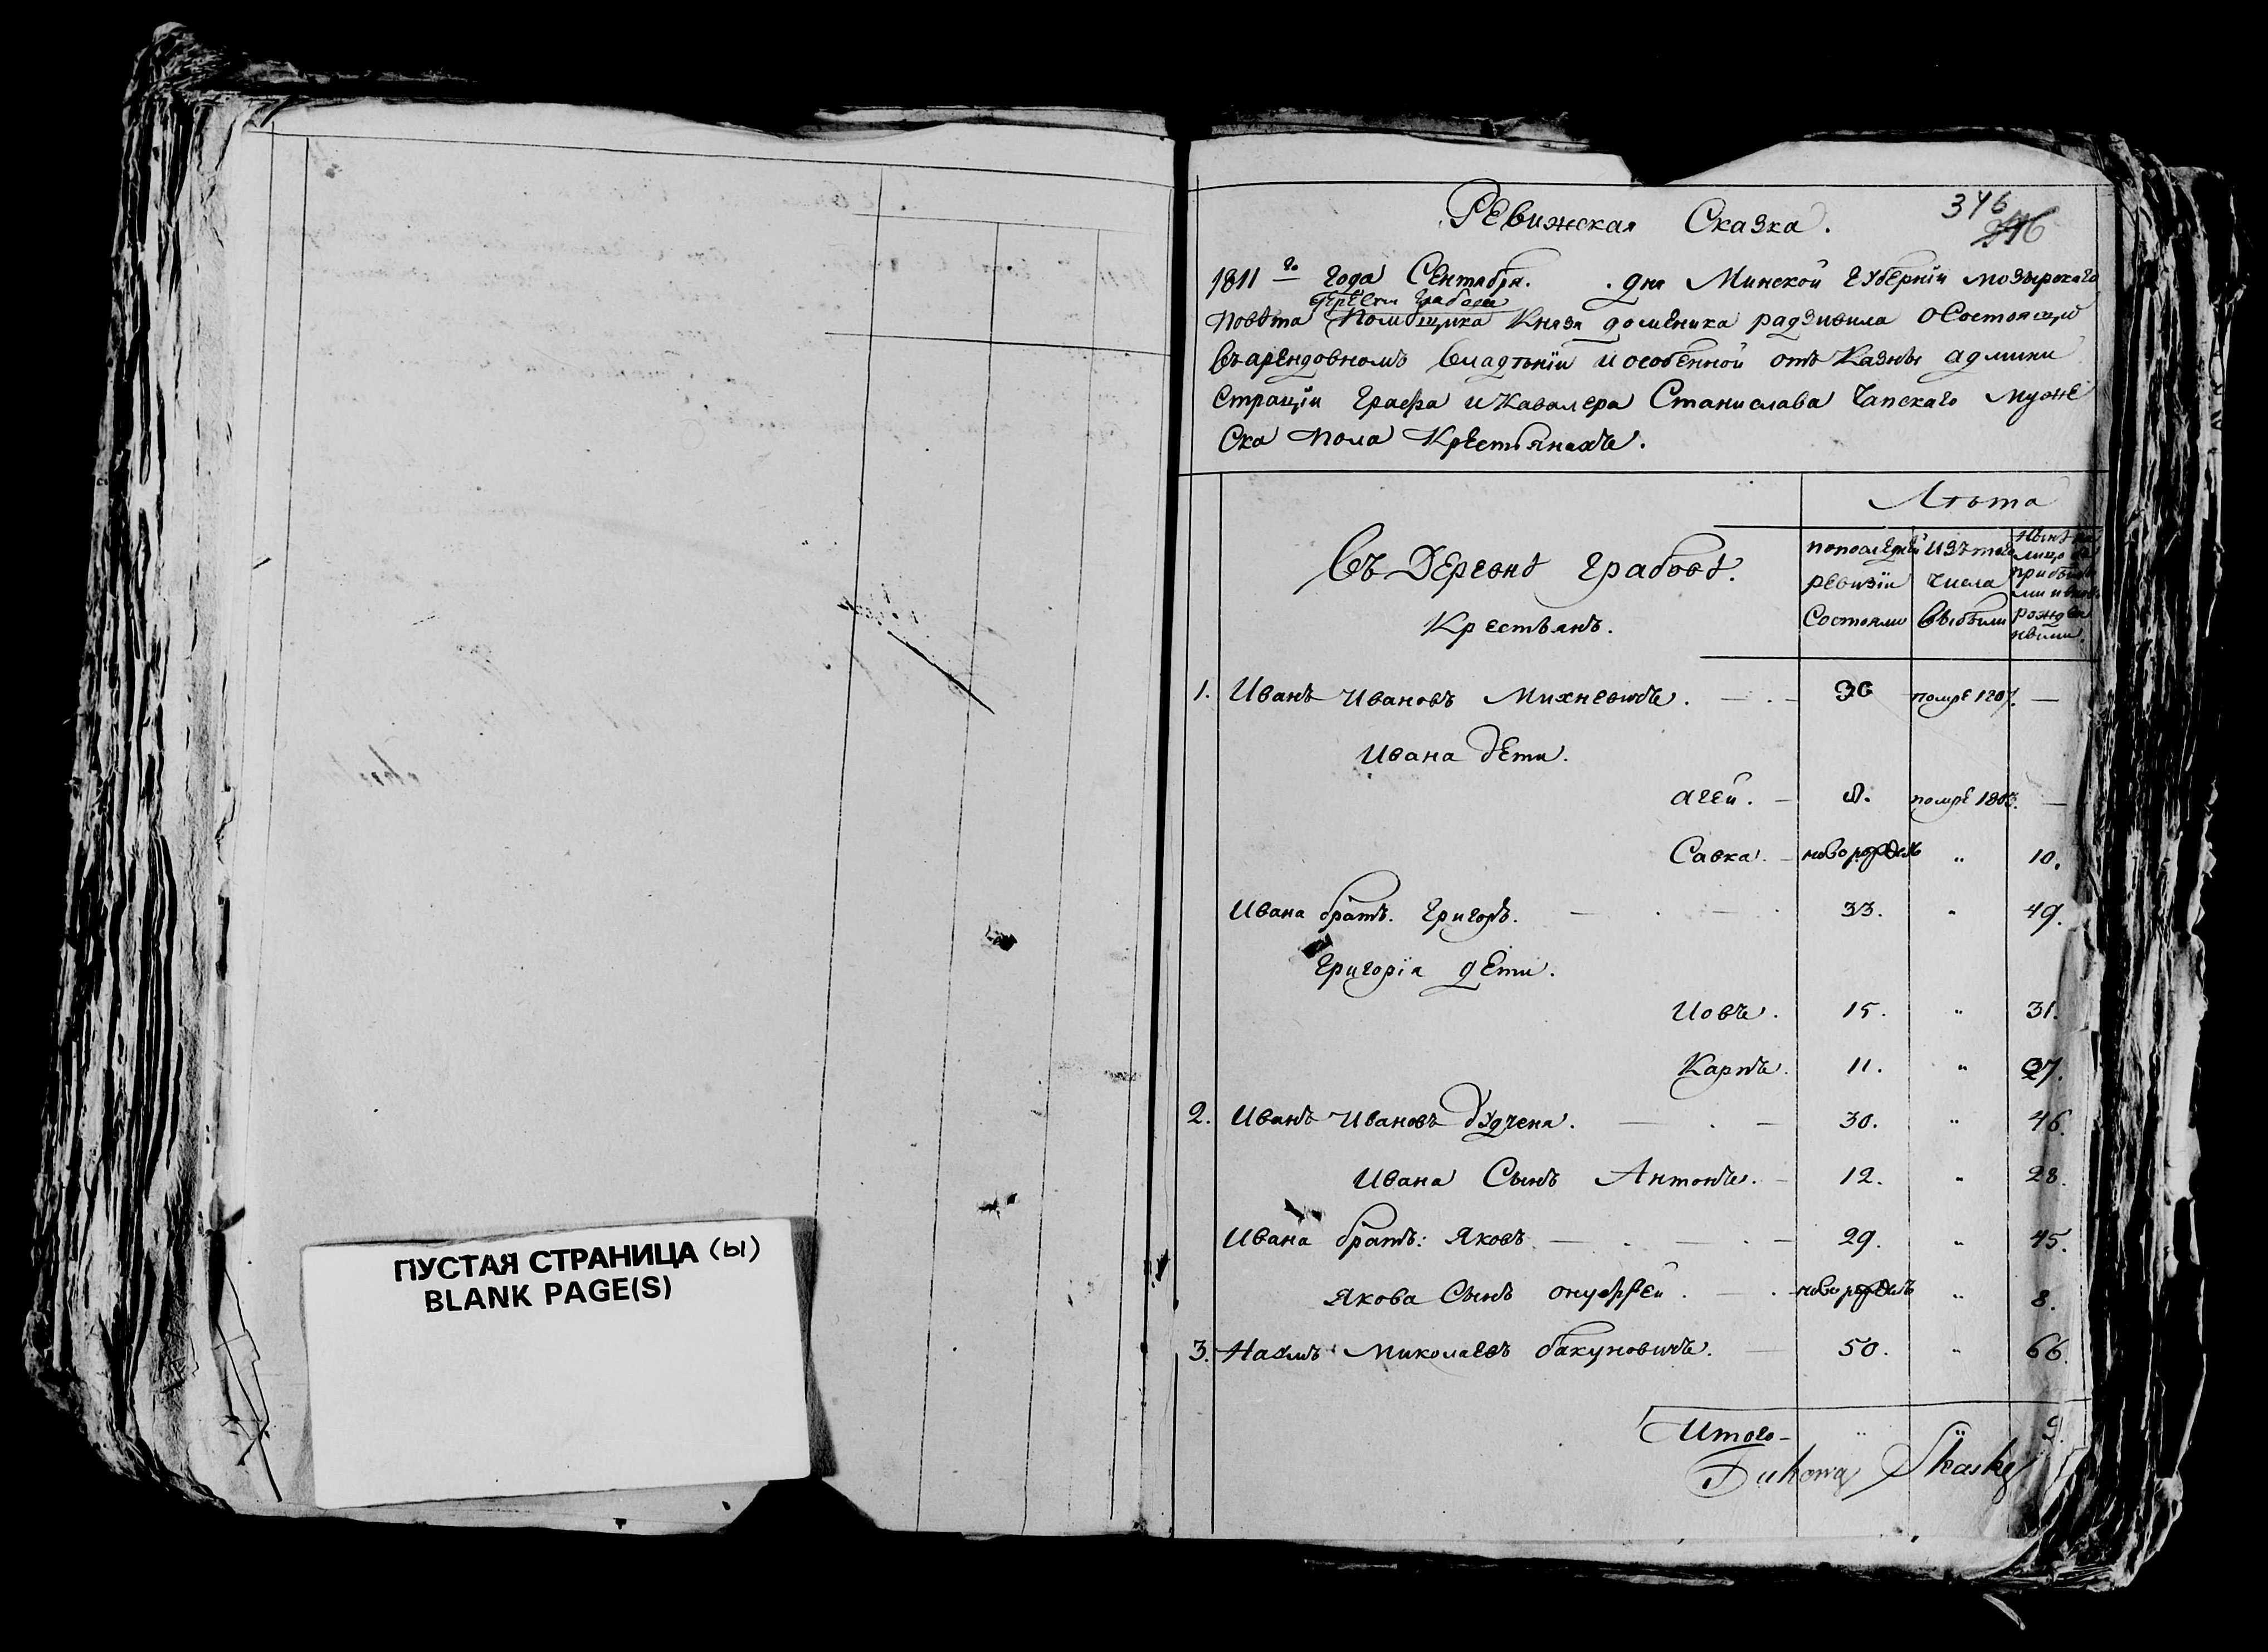 ПУСТАЯ СТРАНИЦА (Ы)
BLANK PAGE(S)
346
Ревижская Сказка.
1811го года Сентября. дня Минской губернїи мозырскаго
деревни Грабова
повѣта Помѣщика Князя доминика радзивила о состоящи
въ арендовномъ владѣнїи и особенной отъ Казны админи
страцїи графа и Кавалера Станислава Чапскаго муже
ска пола Крестьянахъ.
Лѣта
Въ Деревнѣ Грабовѣ.
Крестьянъ.
по последней ревизїи Состояло
изъ того числа выбыли
1. Иванъ Ивановъ Михневичъ. 36 помре 1807. —
Ивана дети.
агей. 8. помре 1808. —
Савка. новорожденъ " 10.
Ивана братъ. Григоръ. 33. " 49.
Григорїя дети.
Иовъ. 15. " 31.
Карпъ. 11. " 27.
2. Иванъ Ивановъ будчена. 30. " 46.
Ивана Сынъ Антонъ. 12. " 28.
Ивана братъ: Яковъ 29. " 45.
Якова Сынъ онуфрей. новорожденъ " 8.
3. Наумъ Миколаевъ бакуновичъ. 50. " 66.
Итого " 9.